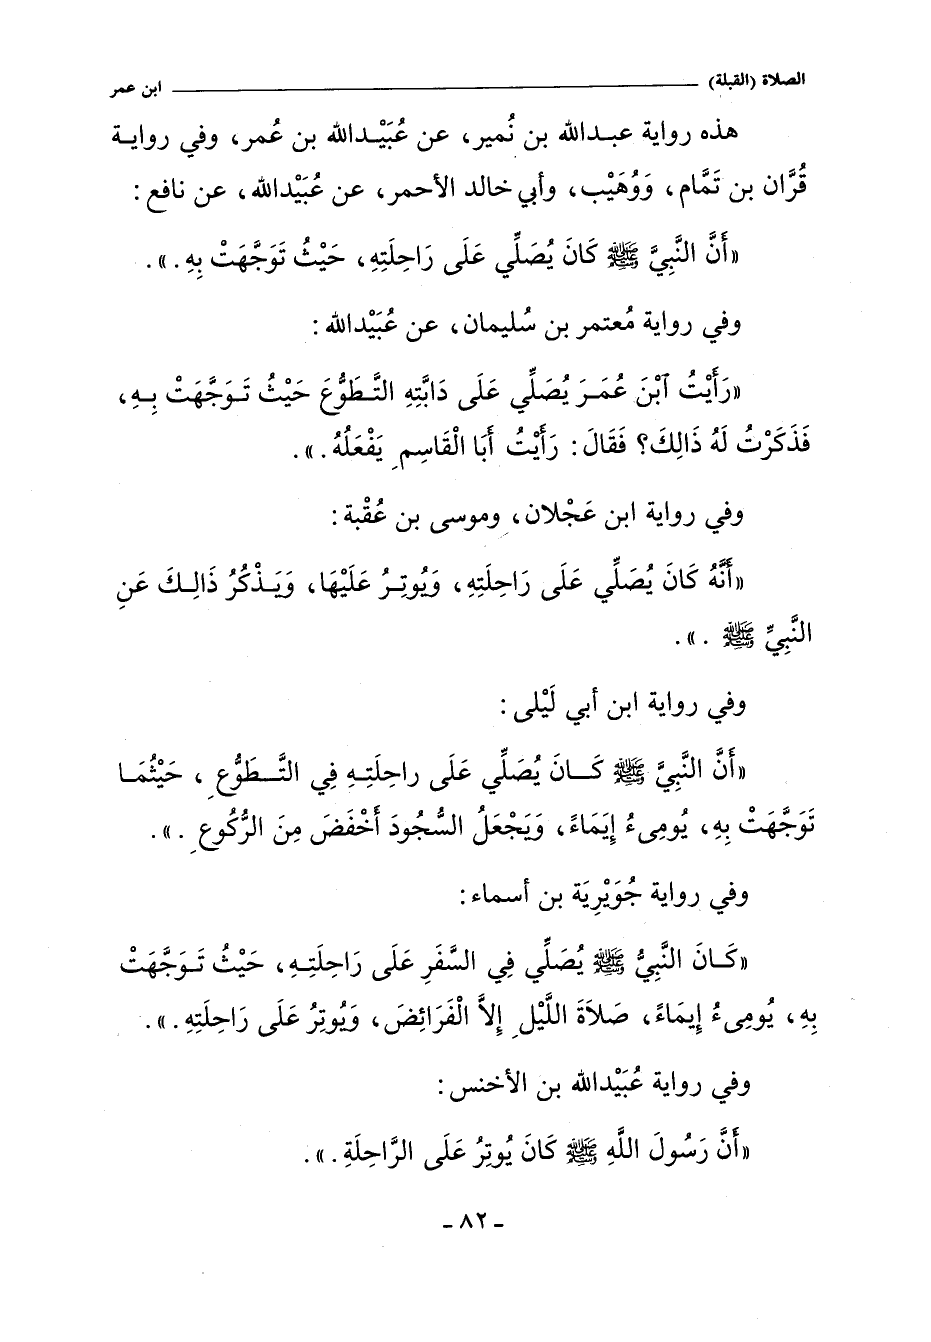 الصلاة (القبلة) ابن عمر
هذه رواية عبدالله بن نُمير، عن عُبَيْدالله بن عُمر، وفي رواية
قُرَّان بن تَمَّام، وَوُهَيْب، وأبي خالد الأحمر، عن عُبَيْدالله، عن نافع:
«أَنَّ النَّبِيَّ ﷺ كَانَ يُصَلِّي عَلَى رَاحِلَتِهِ، حَيْثُ تَوَجَّهَتْ بِهِ.».
وفي رواية مُعتمر بن سُليمان، عن عُبَيْدالله:
«رَأَيْتُ ٱبْنَ عُمَرَ يُصَلِّي عَلَى دَابَّتِهِ التَّطَوُّعَ حَيْثُ تَوَجَّهَتْ بِهِ،
فَذَكَرْتُ لَهُ ذَالِكَ؟ فَقَالَ: رَأَيْتُ أَبَا الْقَاسِمِ يَفْعَلُهُ.».
وفي رواية ابن عَجْلان، وموسى بن عُقْبة:
«أَنَّهُ كَانَ يُصَلِّي عَلَى رَاحِلَتِهِ، وَيُوتِرُ عَلَيْهَا، وَيَذْكُرُ ذَالِكَ عَنِ
النَّبِيِّ ﷺ .».
وفي رواية ابن أبي لَيْلى:
«أَنَّ النَّبِيَّ ﷺ كَانَ يُصَلِّي عَلَى راحِلَتِهِ فِي التَّطَوُّعِ، حَيْثُمَا
تَوَجَّهَتْ بِهِ، يُومِىءُ إِيَمَاءً، وَيَجْعَلُ السُّجُودَ أَخْفَضَ مِنَ الرُّكُوعِ.».
وفي رواية جُوَيْرِيَة بن أسماء:
«كَانَ النَّبِيُّ ﷺ يُصَلِّي فِي السَّفَرِ عَلَى رَاحِلَتِهِ، حَيْثُ تَوَجَّهَتْ
بِهِ، يُومِىءُ إِيَمَاءً، صَلَاةَ اللَّيْلِ إِلاَّ الْفَرَائِضَ، وَيُوتِرُ عَلَى رَاحِلَتِهِ.».
وفي رواية عُبَيْدالله بن الأخنس:
«أَنَّ رَسُولَ اللَّهِ ﷺ كَانَ يُوتِرُ عَلَى الرَّاحِلَةِ.».
- ٨٢ -